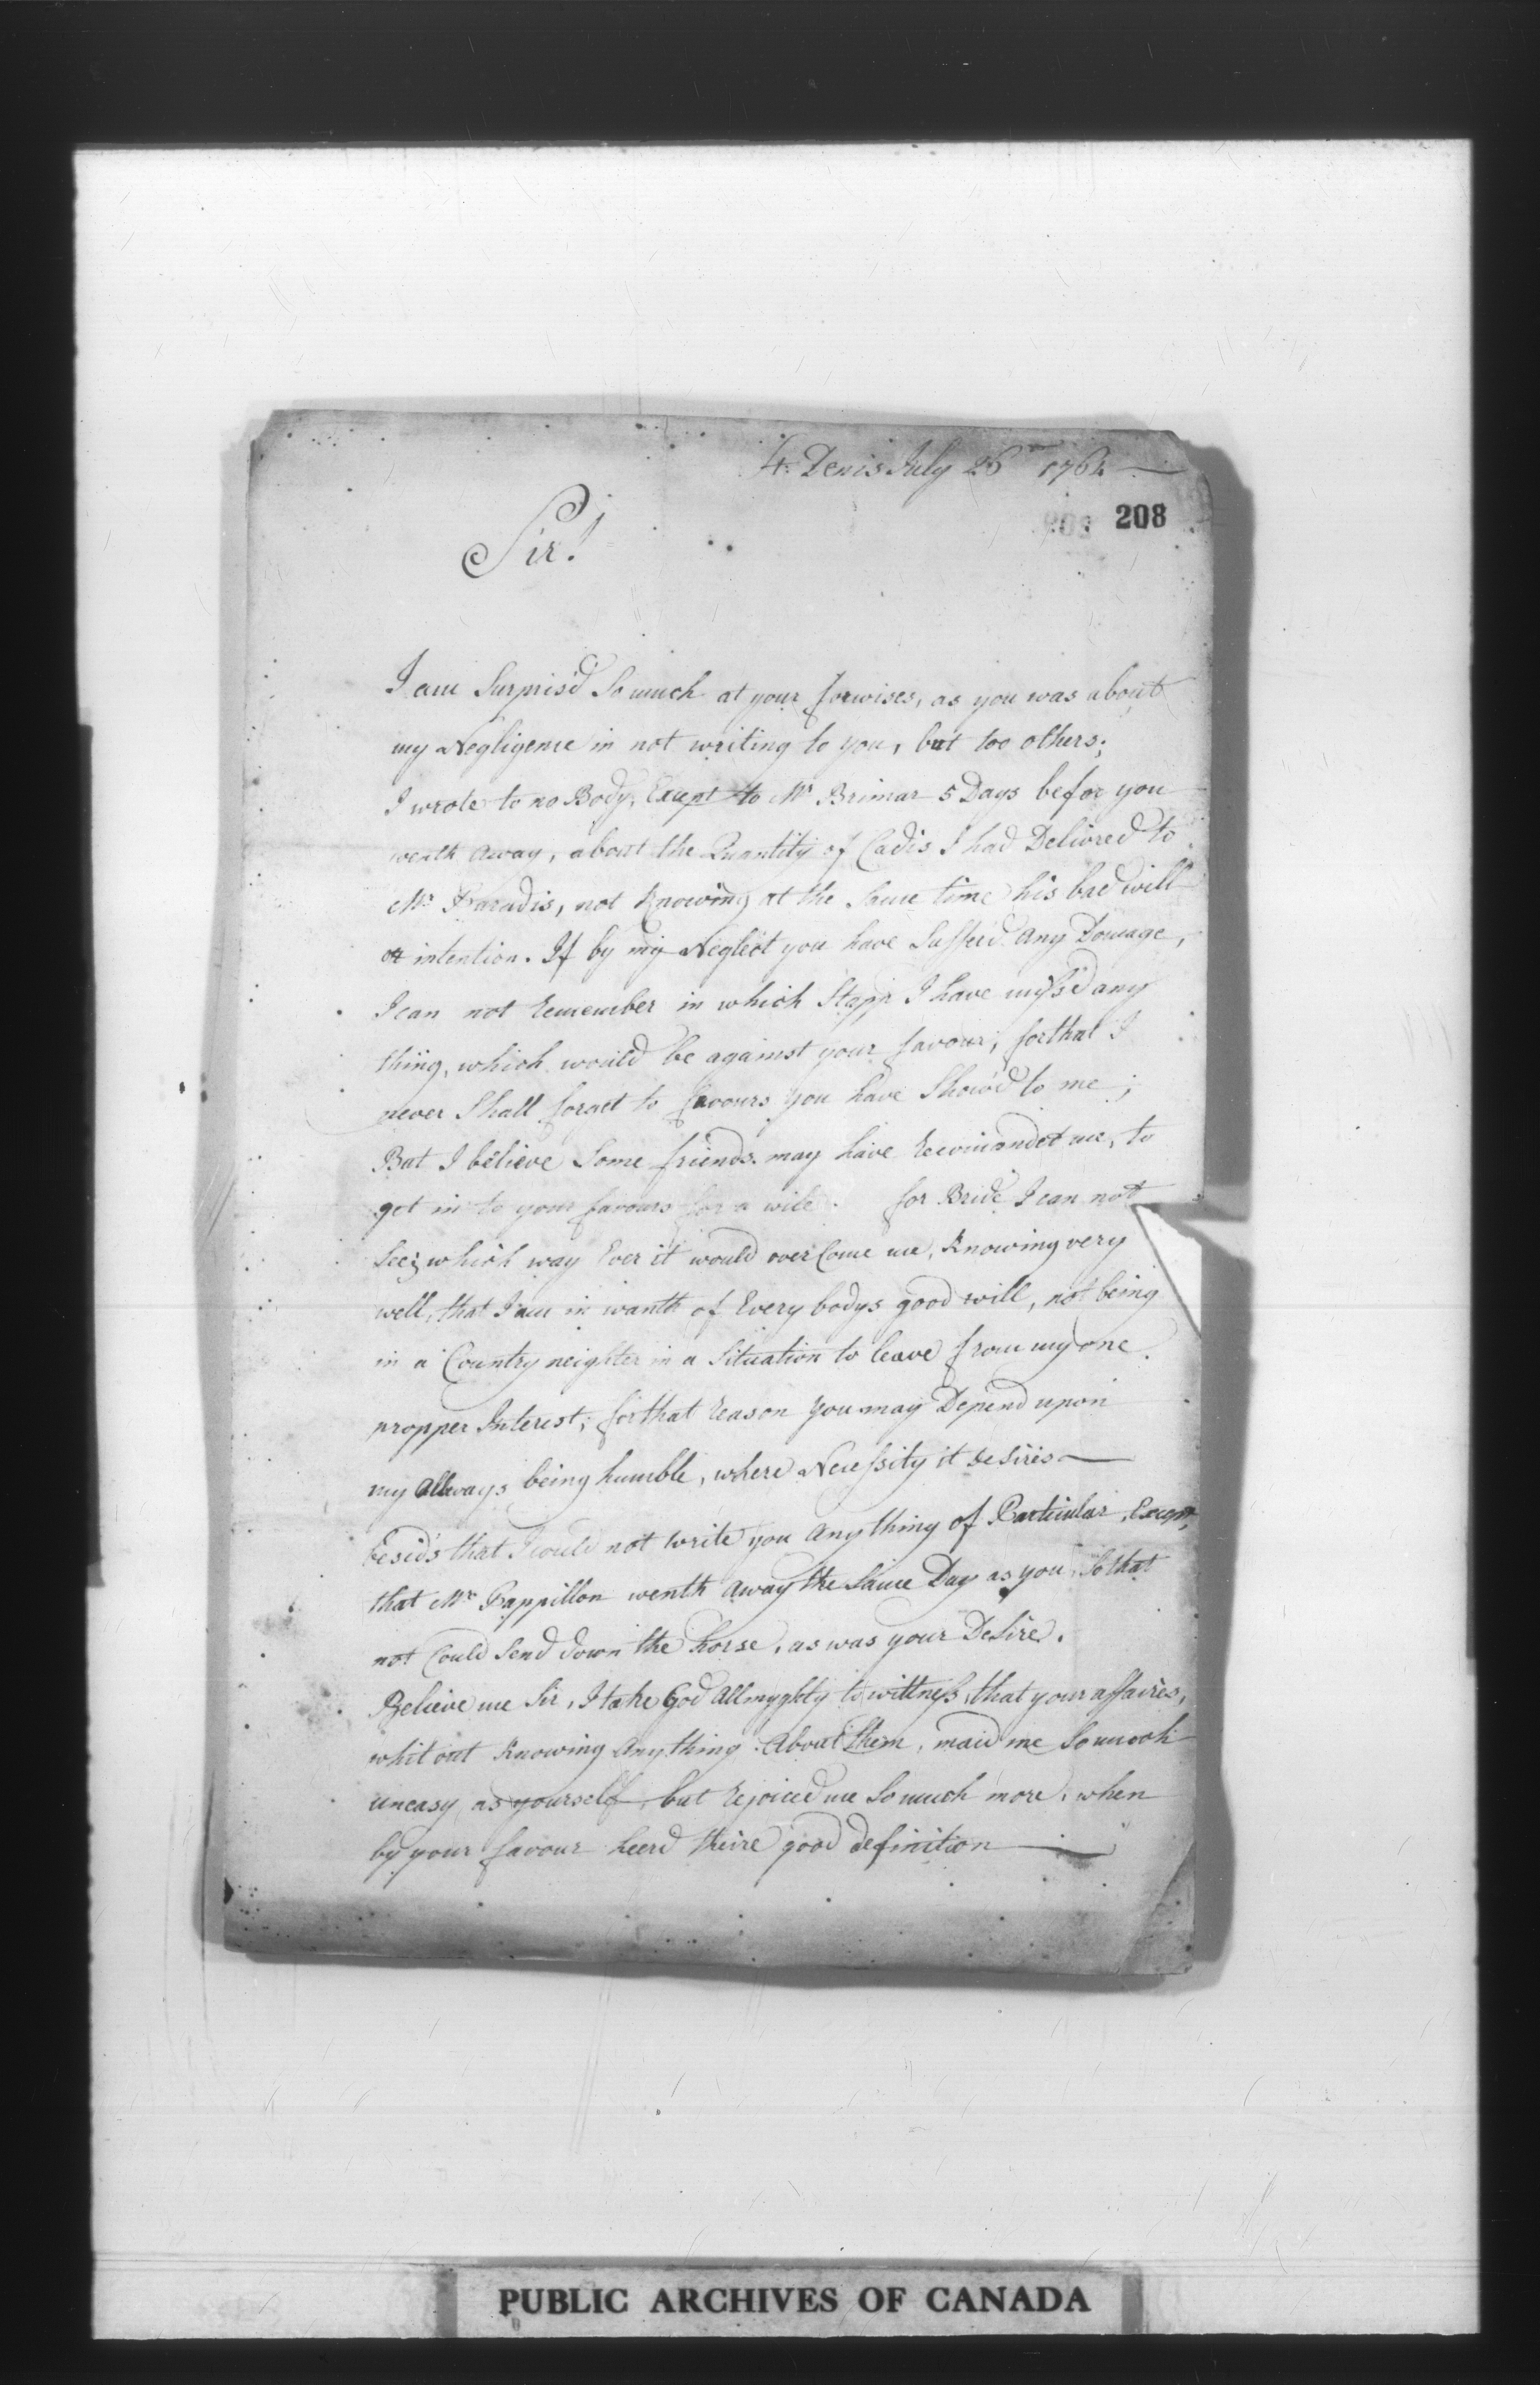 St. Denis July 26th 1762
208
Sir!
I am Surpris'd So much at your forwises, as you was about
my Negligence in not writing to you, but too others;
I wrote to no Body, Except to Mr Brimar 5 Days befor you
wenth away, about the Quantity of Cadis I had Delivred to
Mr Paradis, not Knowing at the Same time his bad will
or intention. If by my Neglect you have Suffer'd any Domage,
I can not Remember in which Stapp I have myss'd any
thing, which would be against your favour; for that I
never Shall forget to favours you have Show'd to me;
But I believe Some friends may have Recomandet me, to
get in to your favours for a wile. for Bride I can not
See; which way Ever it would over Come me, Knowing very
well, that I am in wanth of Every bodys good will, not being
in a Country neighter in a Situation to leave from my one
propper Interest; for that Reason you may Depend upon
my allways being humble, where Necessity it desires
besid's that I could not write you any thing of Particular, Except,
that Mr Pappillon wenth away the Same Day as you, So that
not Could Send down the horse, as was your Desire.
Believe me Sir, I take God Allmyghty to wittness, that your affaires,
whit out Knowing any thing About them, maid me So much
uneasy as yourself, but Rejoiced me So much more, when
by your favour heerd theire good definition
PUBLIC ARCHIVES OF CANADA